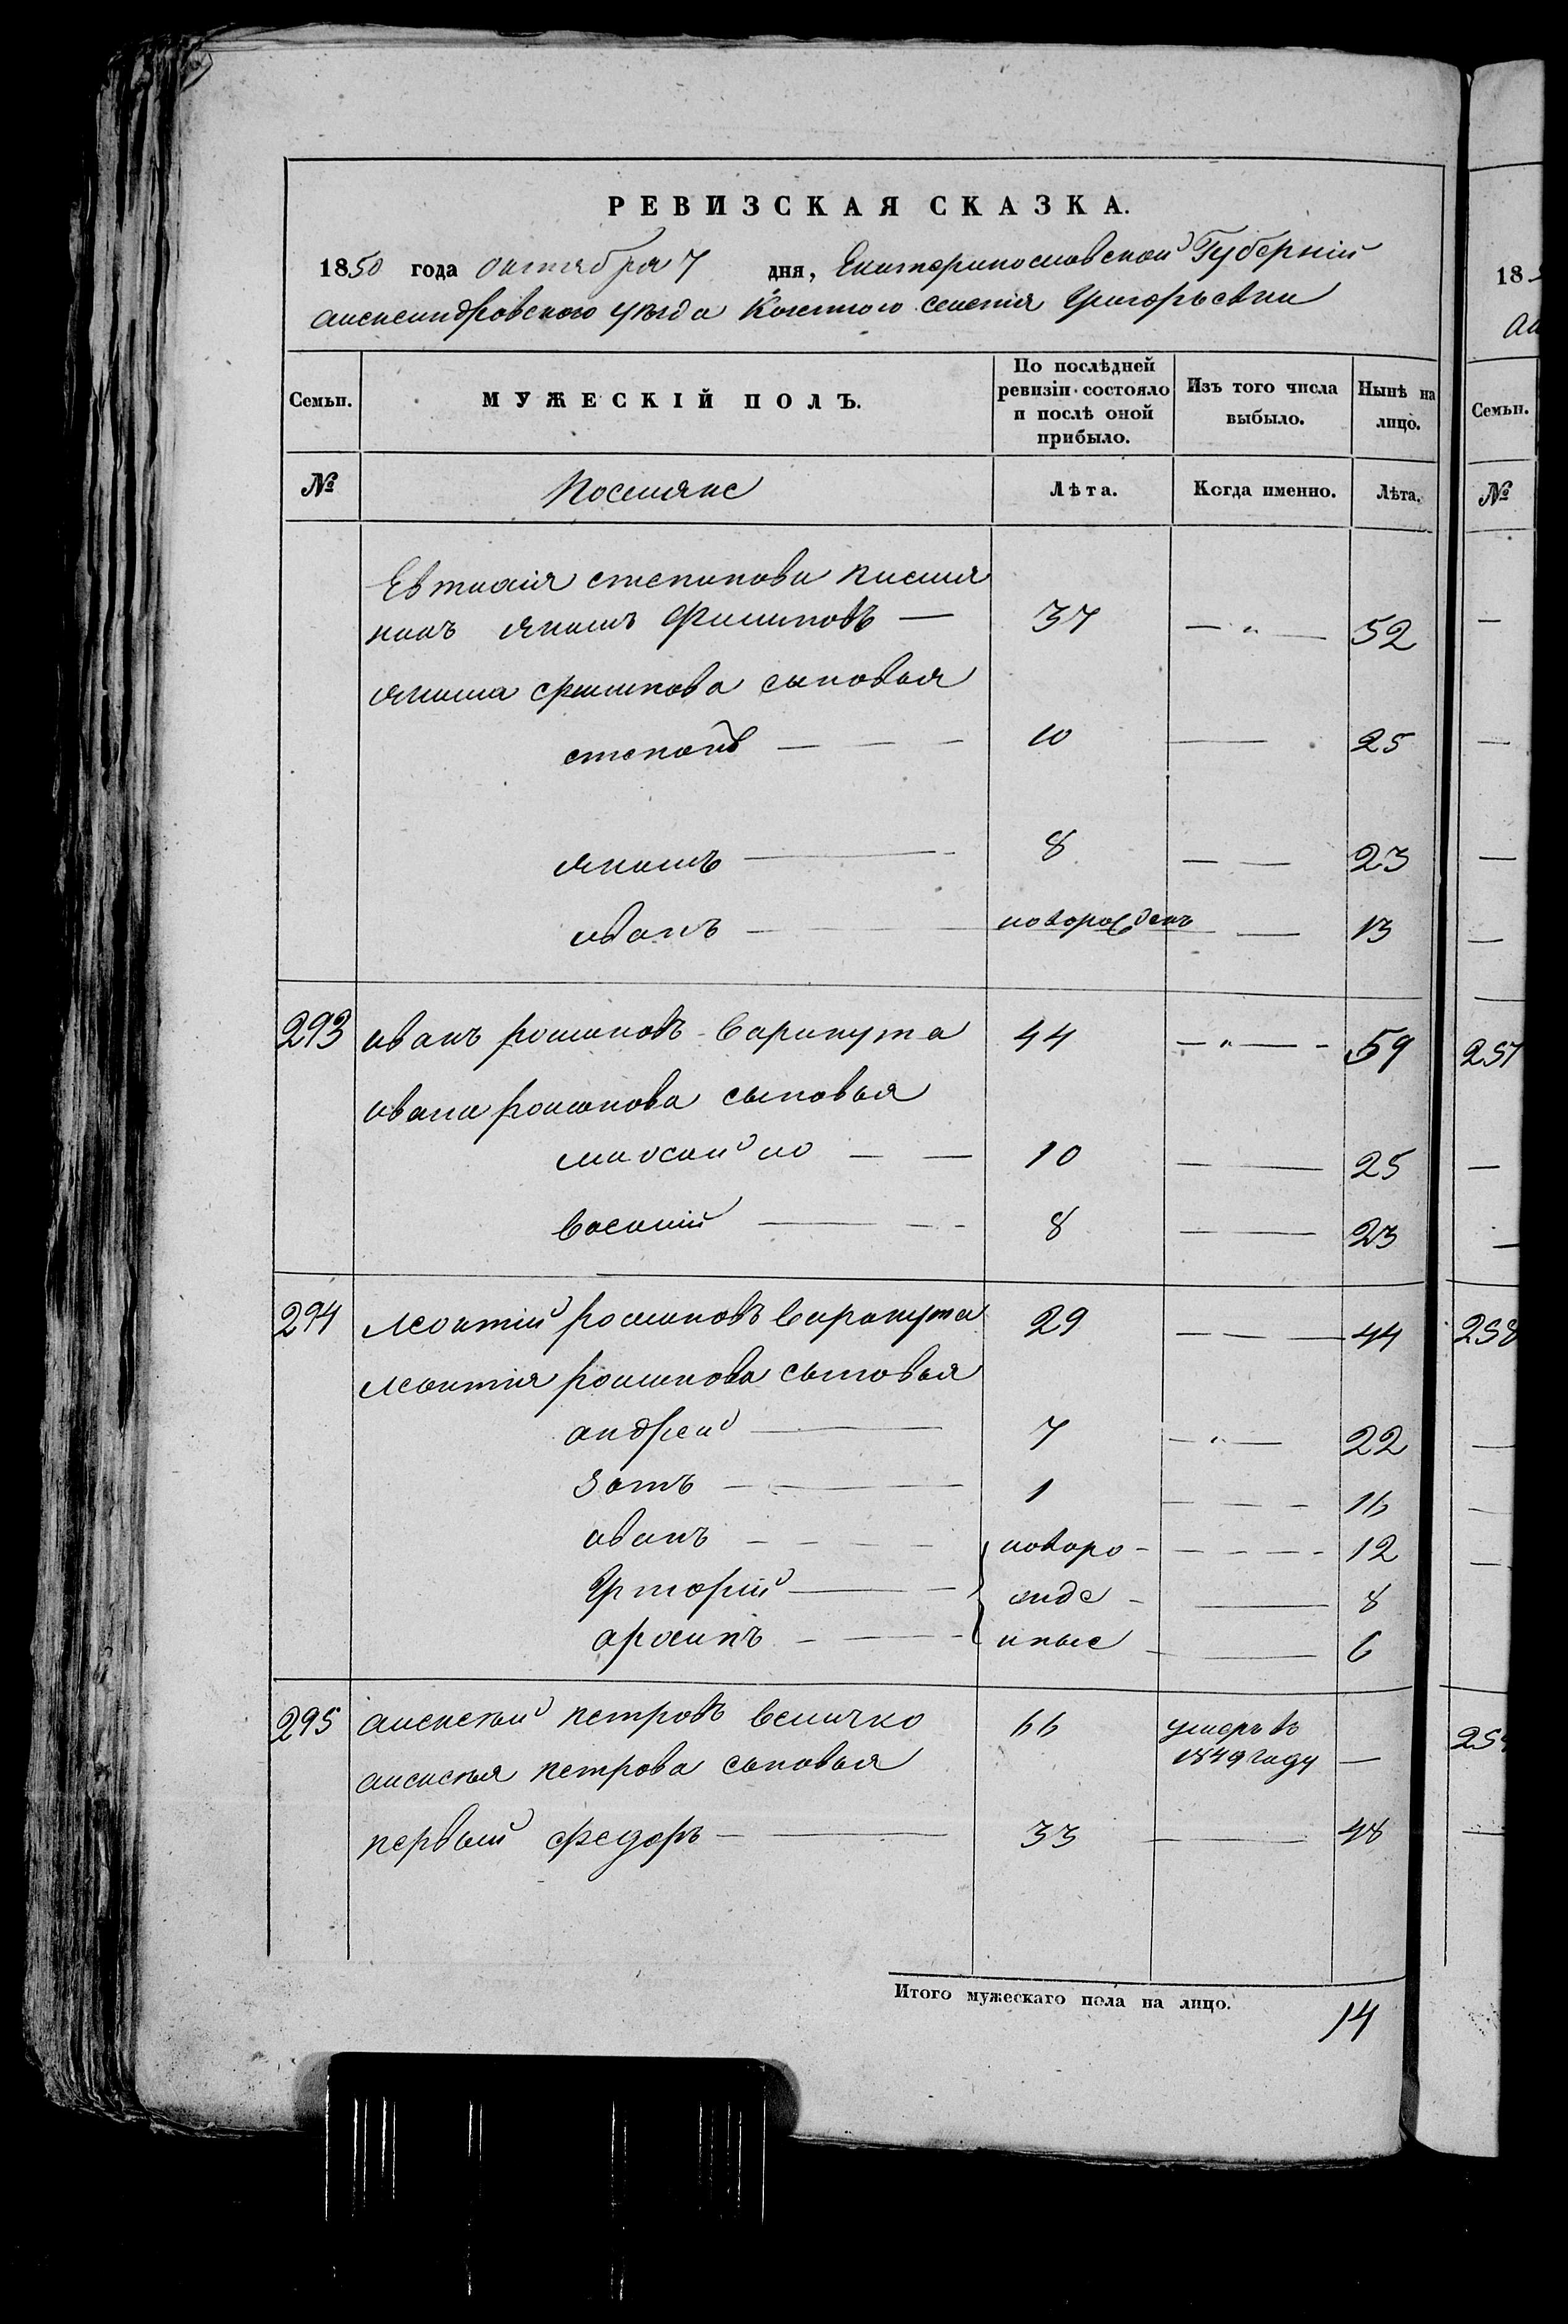 РЕВИЗСКАЯ СКАЗКА.
1850 года октября 7 дня, Екатеринославской Губерніи
александровского уезда Казенного селения Григорьевки
Семьи. МУЖЕСКІЙ ПОЛЪ. По послѣдней ревизіи состояло и послѣ оной прибыло. Изъ того числа выбыло. Нынѣ на лицо.
№ Поселяне Лѣта. Когда именно. Лѣта.
Евтихія степанова племя
никъ якимъ Филиповъ — 37 — " — 52
якима филипова сыновья
степанъ — — — 10 — 25
якимъ — 8 — — 23
иванъ — — новорожденъ — 13
293 иванъ романовъ Варакута 44 — " — - 59
ивана романова сыновья
михайло — — 10 — — 25
василий — - - 8 — — 23
294 леонтий романовъ Варакута 29 — — — 44
леонтия романова сыновья
андрей — 7 — " — 22
Зотъ — — 1 — — - 16
иванъ — — — — новоро- — — — - 12
Григорий — — жде - — 8
архипъ - — - нные — 6
295 алексей петровъ величко 66 умеръ въ
1849 году —
алексея петрова сыновья
первый федоръ — — 33 — — 48
Итого мужескаго пола на лицо. 14
18
Семьи.
№
257
258